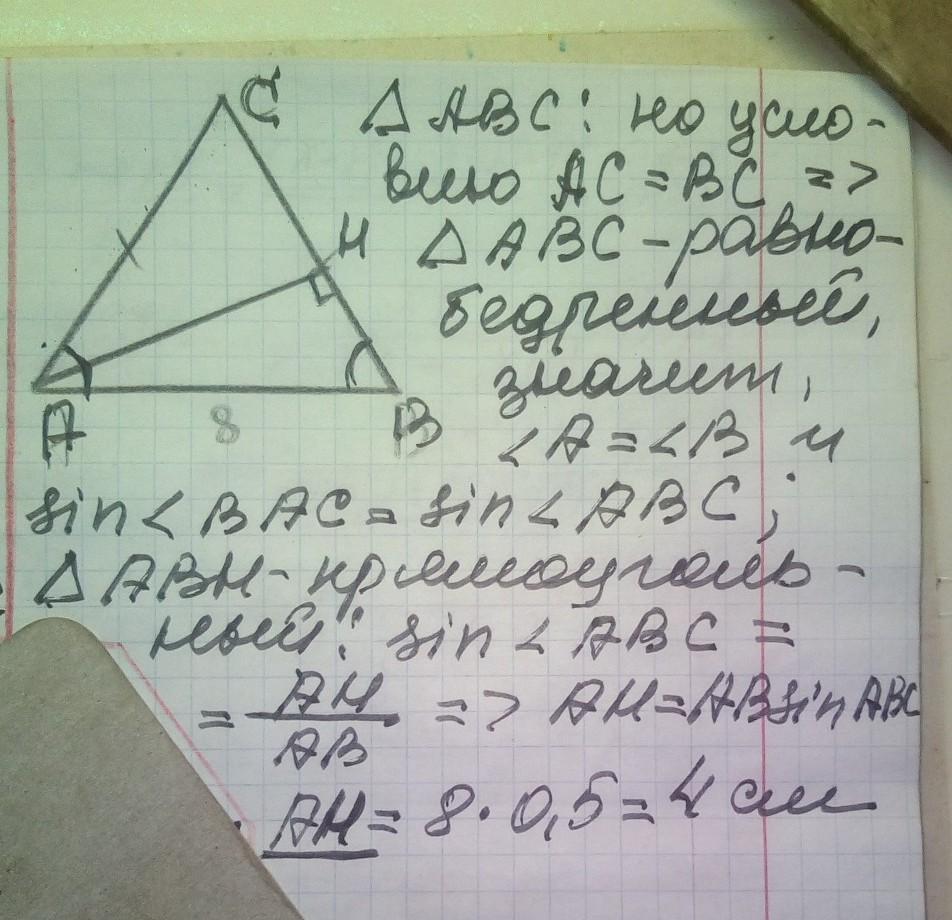 C
△ABC: по усло-
вию AC = BC =>
H △ABC - равно-
бедренный,
значит,
A 8 B <A = <B и
sin < BAC = sin < ABC;
△ABH - прямоуголь-
ный: sin < ABC =
= AH/AB => AH = AB sin ABC
AH = 8 · 0,5 = 4 см